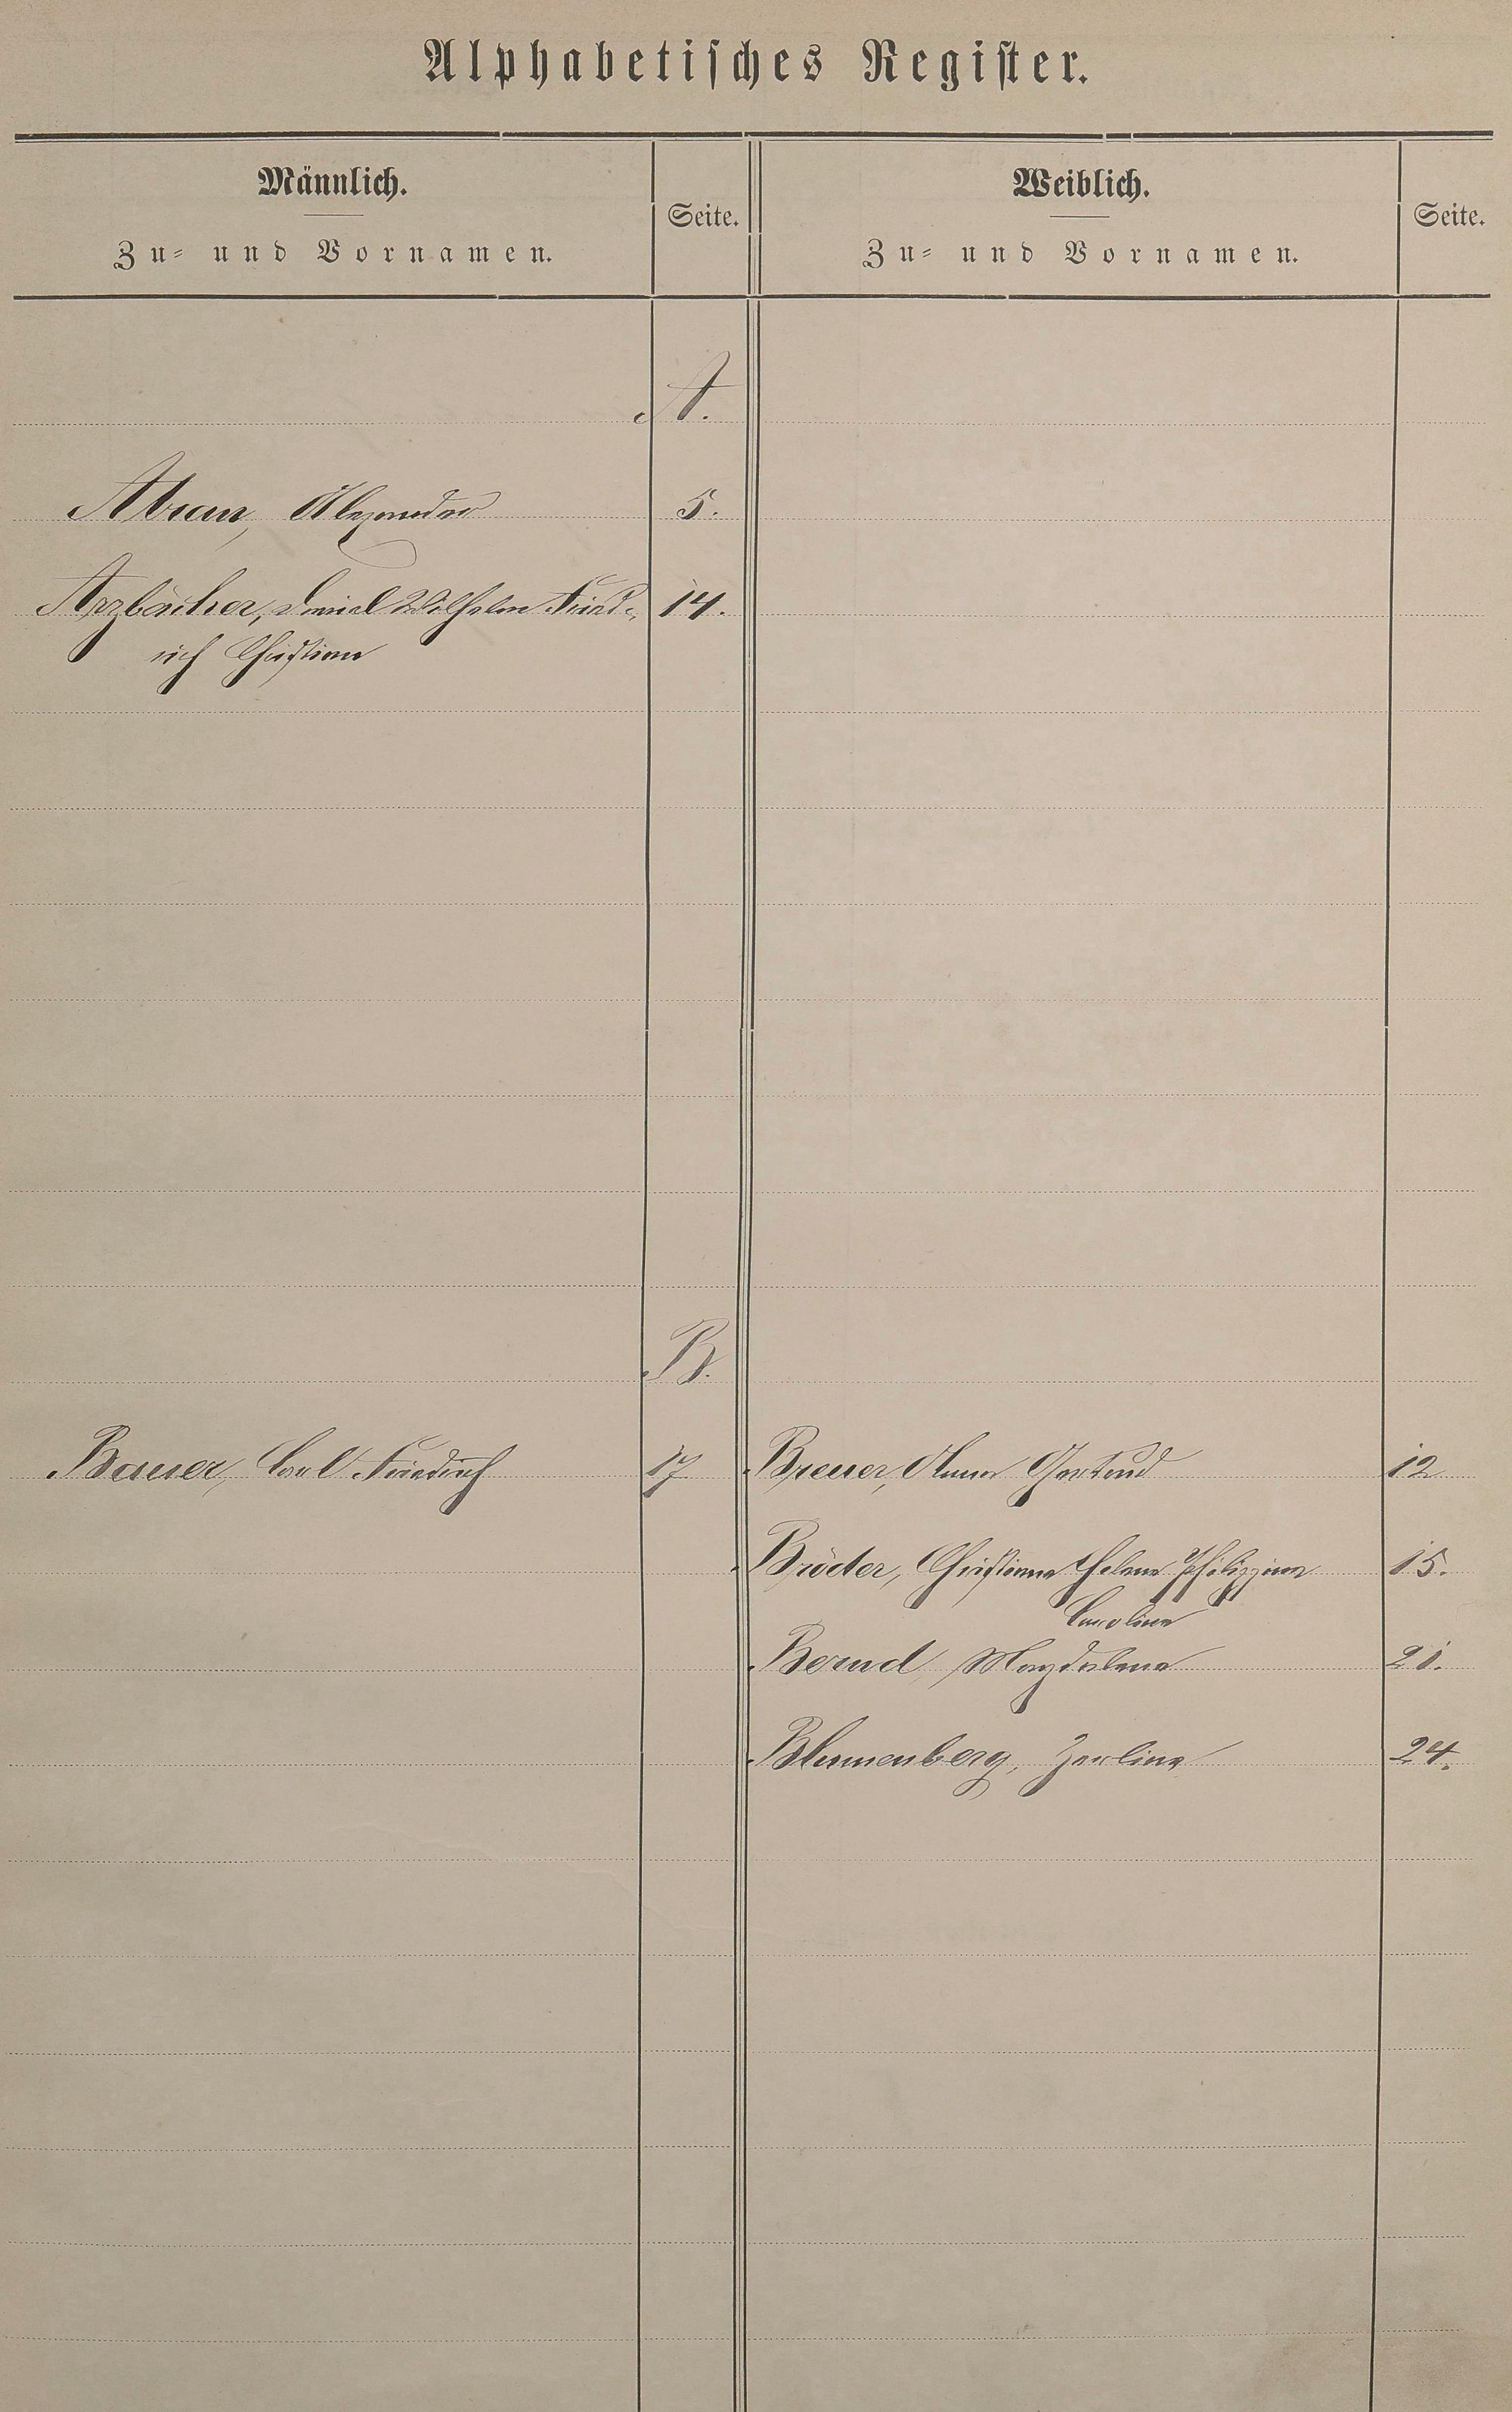 Alphabetisches Register.
Männlich.
Zu- und Vornamen.
Seite.
Weiblich.
Zu- und Vornamen.
Seite.
A.
Alexander 5.
Arzbächer, Daniel Wilhelm Fried- 14.
rich Christian
B.
Bauer, Carl Friedrich 17 Breuer, Anna Gertrud 12
Bröder, Christiane Helene Philippine 15.
Caroline
Bernd, Magdalena 21.
Blumenberg, Zerline 24.